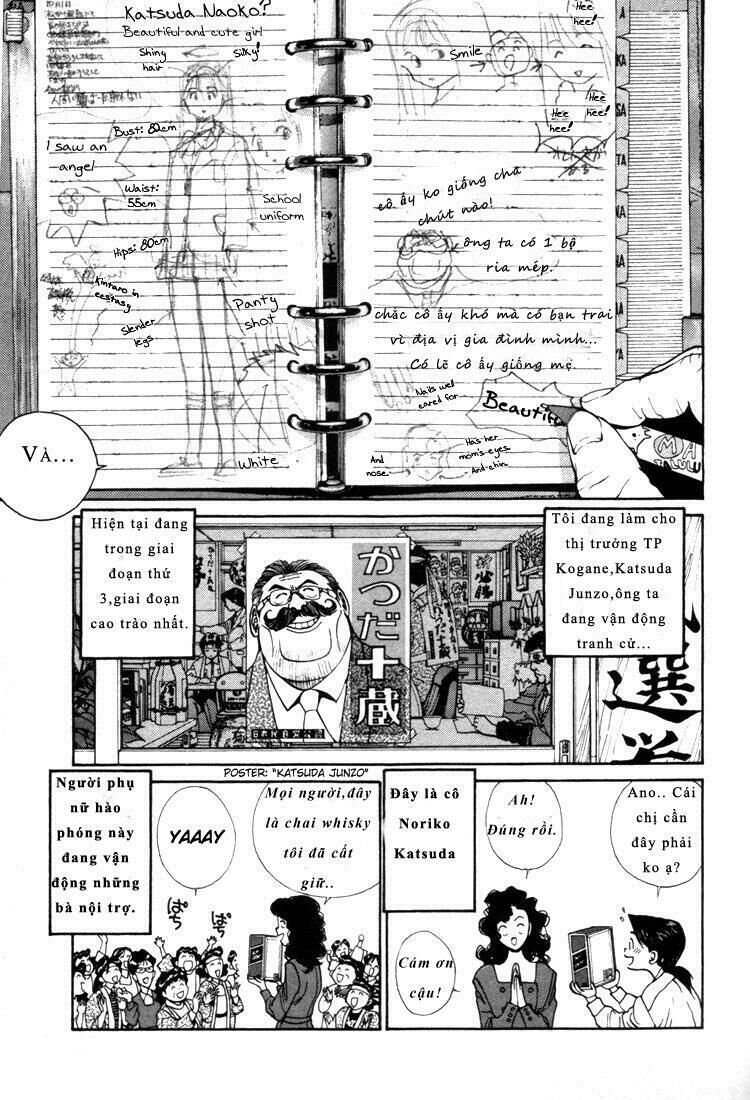 Katsuda Naoko?
Beautiful and cute girl
Shiny
hair
Silky!
Bust: 82cm
I saw an
angel
Waist:
55cm
School
uniform
Hips: 80cm
Kintaro in
ecstasy
Slender
legs
Panty
shot
White
Smile
Hee
hee!
Hee
hee!
Hee
hee!
A
KA
SA
TA
NA
cô ấy ko giống cha
chút nào!
ông ta có 1 bộ
ria mép.
chắc cô ấy khó mà có bạn trai
vì địa vị gia đình mình...
Có lẽ cô ấy giống mẹ.
Nails well
cared for
Beautifu
And
nose.
Has her
mom's eyes.
And chin.
Và...
Hiện tại đang
trong giai
đoạn thứ
3,giai đoạn
cao trào nhất.
かつだ十蔵
Tôi đang làm cho
thị trưởng TP
Kogane,Katsuda
Junzo,ông ta
đang vận động
tranh cử...
選挙
POSTER: "KATSUDA JUNZO"
Người phụ
nữ hào
phóng này
đang vận
động những
bà nội trợ.
YAAAY
Mọi người,đây
là chai whisky
tôi đã cất
giữ..
ぱち
ぱち
Đây là cô
Noriko
Katsuda
Ah!
Đúng rồi.
Ano.. Cái
chị cần
đây phải
ko ạ?
Cám ơn
cậu!